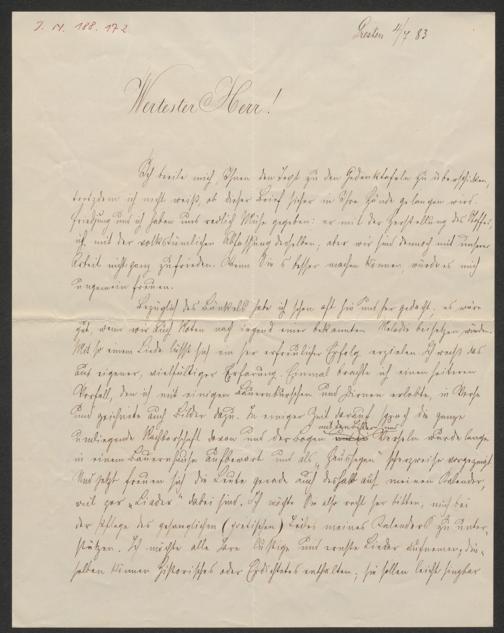 J. N. 188.172
Gresten 4/7 83
Wertester Herr!
Ich beeile mich, Ihnen den Text zu den Gedenktafeln zu überschicken,
trotzdem ich nicht weiß, ob dieser Brief sicher in Ihre Hände gelangen wird.
und ich haben uns redlich Mühe gegeben: er mit der Herstellung des Stoffes,
ich mit der volkstümlichen Abfassung desselben, aber wir sind dennoch mit unserer
Arbeit nicht ganz zufrieden. Wenn Sie es besser machen können, würde es mich
ungemein freuen.
Bezüglich des Bänkels habe ich schon oft hin und her gedacht, es wäre
gut, wenn wir auch Noten nach irgend einer bekannten Melodie beisetzen würden.
Mit so einem Liede läßt sich ein ser erfreulicher Erfolg erzielen. Ich weiß das
aus eigener, vielfältiger Erfarung. Einmal brachte ich einen heiteren
Vorfall, den ich mit einigen Bauernburschen und Dirnen erlebte, in Verse
und zeichnete auch Bilder dazu. In einiger Zeit darauf sprach die ganze
umliegende Nachbarschaft davon und der Bogen mit den Bildern und Versen wurde lange
in einem Bauernhause aufbewart und als „Haussegen“ scherzweise vorgezeigt.
Und jetzt freuen sich die Leute gerade auch deshalb auf meinen Kalender,
weil gar „Lieder“ dabei sind. Ich möchte Sie also recht ser bitten, mich bei
der Pflege des gesanglichen (poetischen) Teiles meines Kalenders zu unter-
stützen. Ich möchte alle Jare lustige und ernste Lieder aufnemen; die-
selben können Historisches oder Erdichtetes enthalten; sie sollen leicht singbar